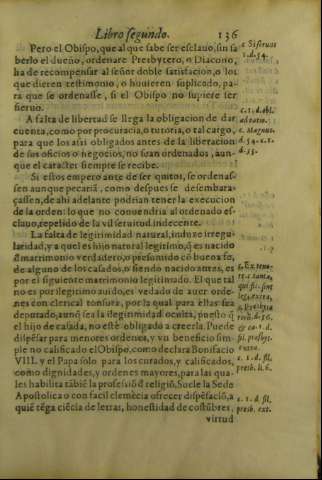 Libro segundo. 136
Pero el Obispo, que al que sabe ser esclauo, sin sa
berlo el dueño, ordenare Presbytero, o Diacono,
ha de recompensar al señor doble satisfacion, o los
que dieren testimonio, o huuieren suplicado, pa-
ra que se ordenasse, si el Obispo no supiere ser
sieruo.
A falta de libertad se llega la obligacion de dar
cuenta, como por procuracia, o tutoria, o tal cargo,
para que los assi obligados antes de la liberacion
de sus oficios o negocios, no sean ordenados, aun-
que el caracter siempre se recibe.
Si estos empero ante de ser quitos, se ordenas-
sen aunque pecariã, como despues se desembara-
çassen, de ahi adelante podrian tener la execucion
de la orden: lo que no conuendria al ordenado es-
clauo, repelido de la vil seruitud indecente.
La falta de legitimidad natural, induze irregu-
laridad, y a quel es hijo natural legitimo, q̃ es nacido
d̃ matrimonio verdadero, o presumido cõ buena fe,
de alguno de los casados, o siendo nacido antes, es
por el siguiente matrimonio legitimado. El que tal
no es por legitimo auido, es vedado de auer orde-
nes con clerical tonsura, por la qual para ellas sea
deputado, aunq̃ sea la ilegitimidad oculta, puesto q̃
el hijo de casada, no està obligado a creerla. Puede
dispẽsar para menores ordenes, y vn beneficio sim-
ple no calificado el Obispo, como declara Bonifacio
VIII. y el Papa solo para los curados, y calificados,
como dignidades, y ordenes mayores, para las qua-
les habilita tãbiẽ la professiõ d̃ religiõ, Suele la Sede
Apostolica o con facil clemẽcia ofrecer dispẽsaciõ, a
quiẽ tẽga ciẽcia de letras, honestidad de costũbres,
virtud
c Si seruus
d. 54.
c. Magnus.
d. 54. c. 1.
d. 55.
c. 1. d. fil.
presb. li. 6.
c. 1. d. fil.
presb. ext.